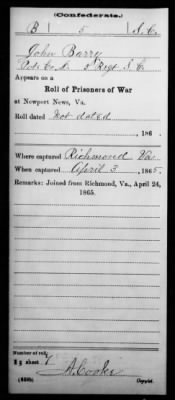 (Confederate.)
B 5 S.C.
John Barry
Co. 5 Regt S.C.
Appears on a
Roll of Prisoners of War
at Newport News, Va.
Roll dated Not dated
, 186 .
Where captured Richmond Va
When captured April 3, 1865.
Remarks: Joined from Richmond, Va., April 24,
1865.
Number of roll:
sheet 7
A. Cooke
Copyist.